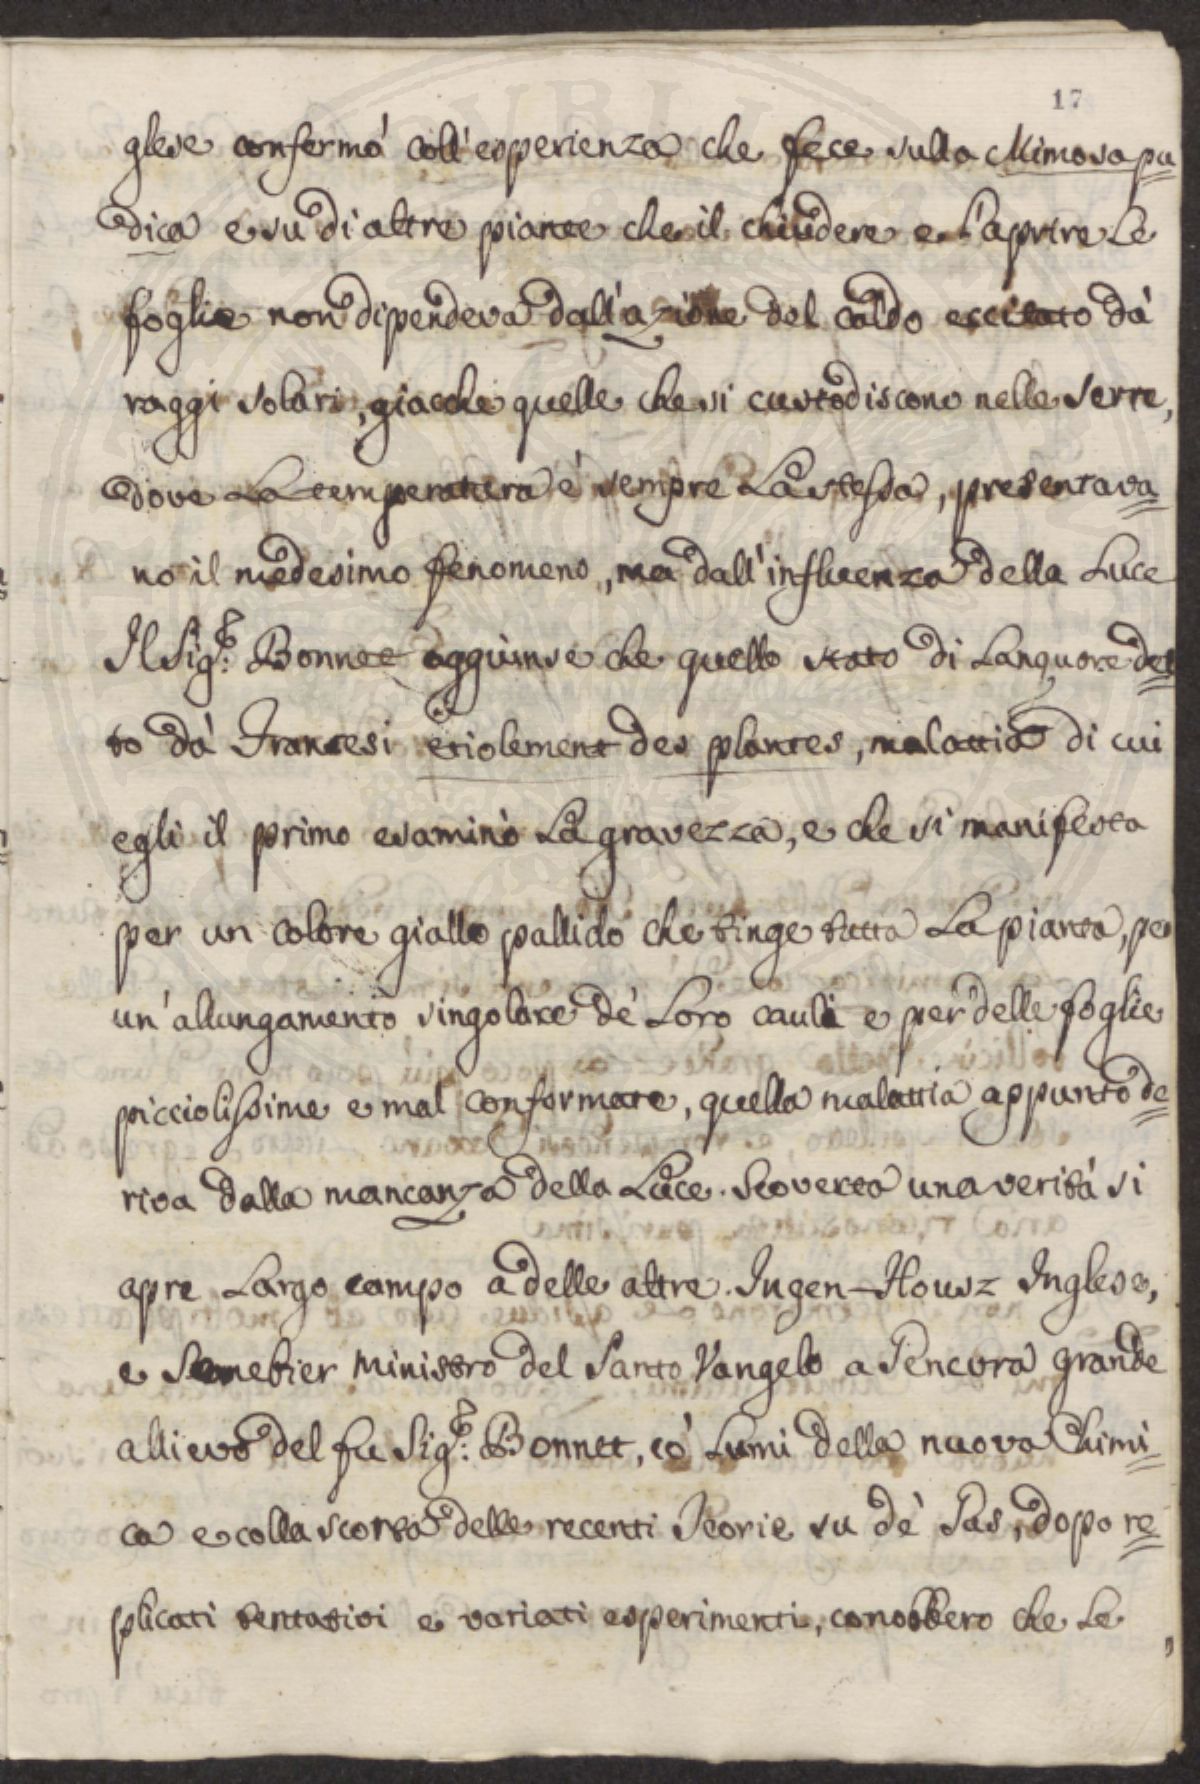 17
glese confermò coll'esperienza che fece sulla Mimosa pu=
dica e su di altre piante che il chiudere e l'aprire le
foglie non dipendeva dall'azione del caldo eccitato dà
raggi solari, giacche quelle che si custodiscono nelle serre,
dove la temperatura è sempre la stessa, presentava=
no il medesimo fenomeno, ma dall'influenza della luce
Il Sig.r: Bonnet aggiunse che quello stato di languore det=
to dà Francesi etiolement des plantes, malattia di cui
egli il primo esaminò la gravezza, e che si manifesta
per un colore giallo pallido che tinge tutta la pianta, per
un'allungamento singolare de' loro cauli e per delle foglie
picciolissime e mal conformate, quella malattia appunto de=
riva dalla mancanza della luce. Scoverta una verità si
apre largo campo a delle altre. Ingen-Housz Inglese,
e Senebier Ministro del Santo Vangelo a Gencvra grande
allievo del fu Sig.r: Bonnet, cò lumi della nuova Chimi=
ca e colla scorta delle recenti Teorie su dè Gas, dopo re=
plicati tentativi e variati esperimenti, conobbero che le